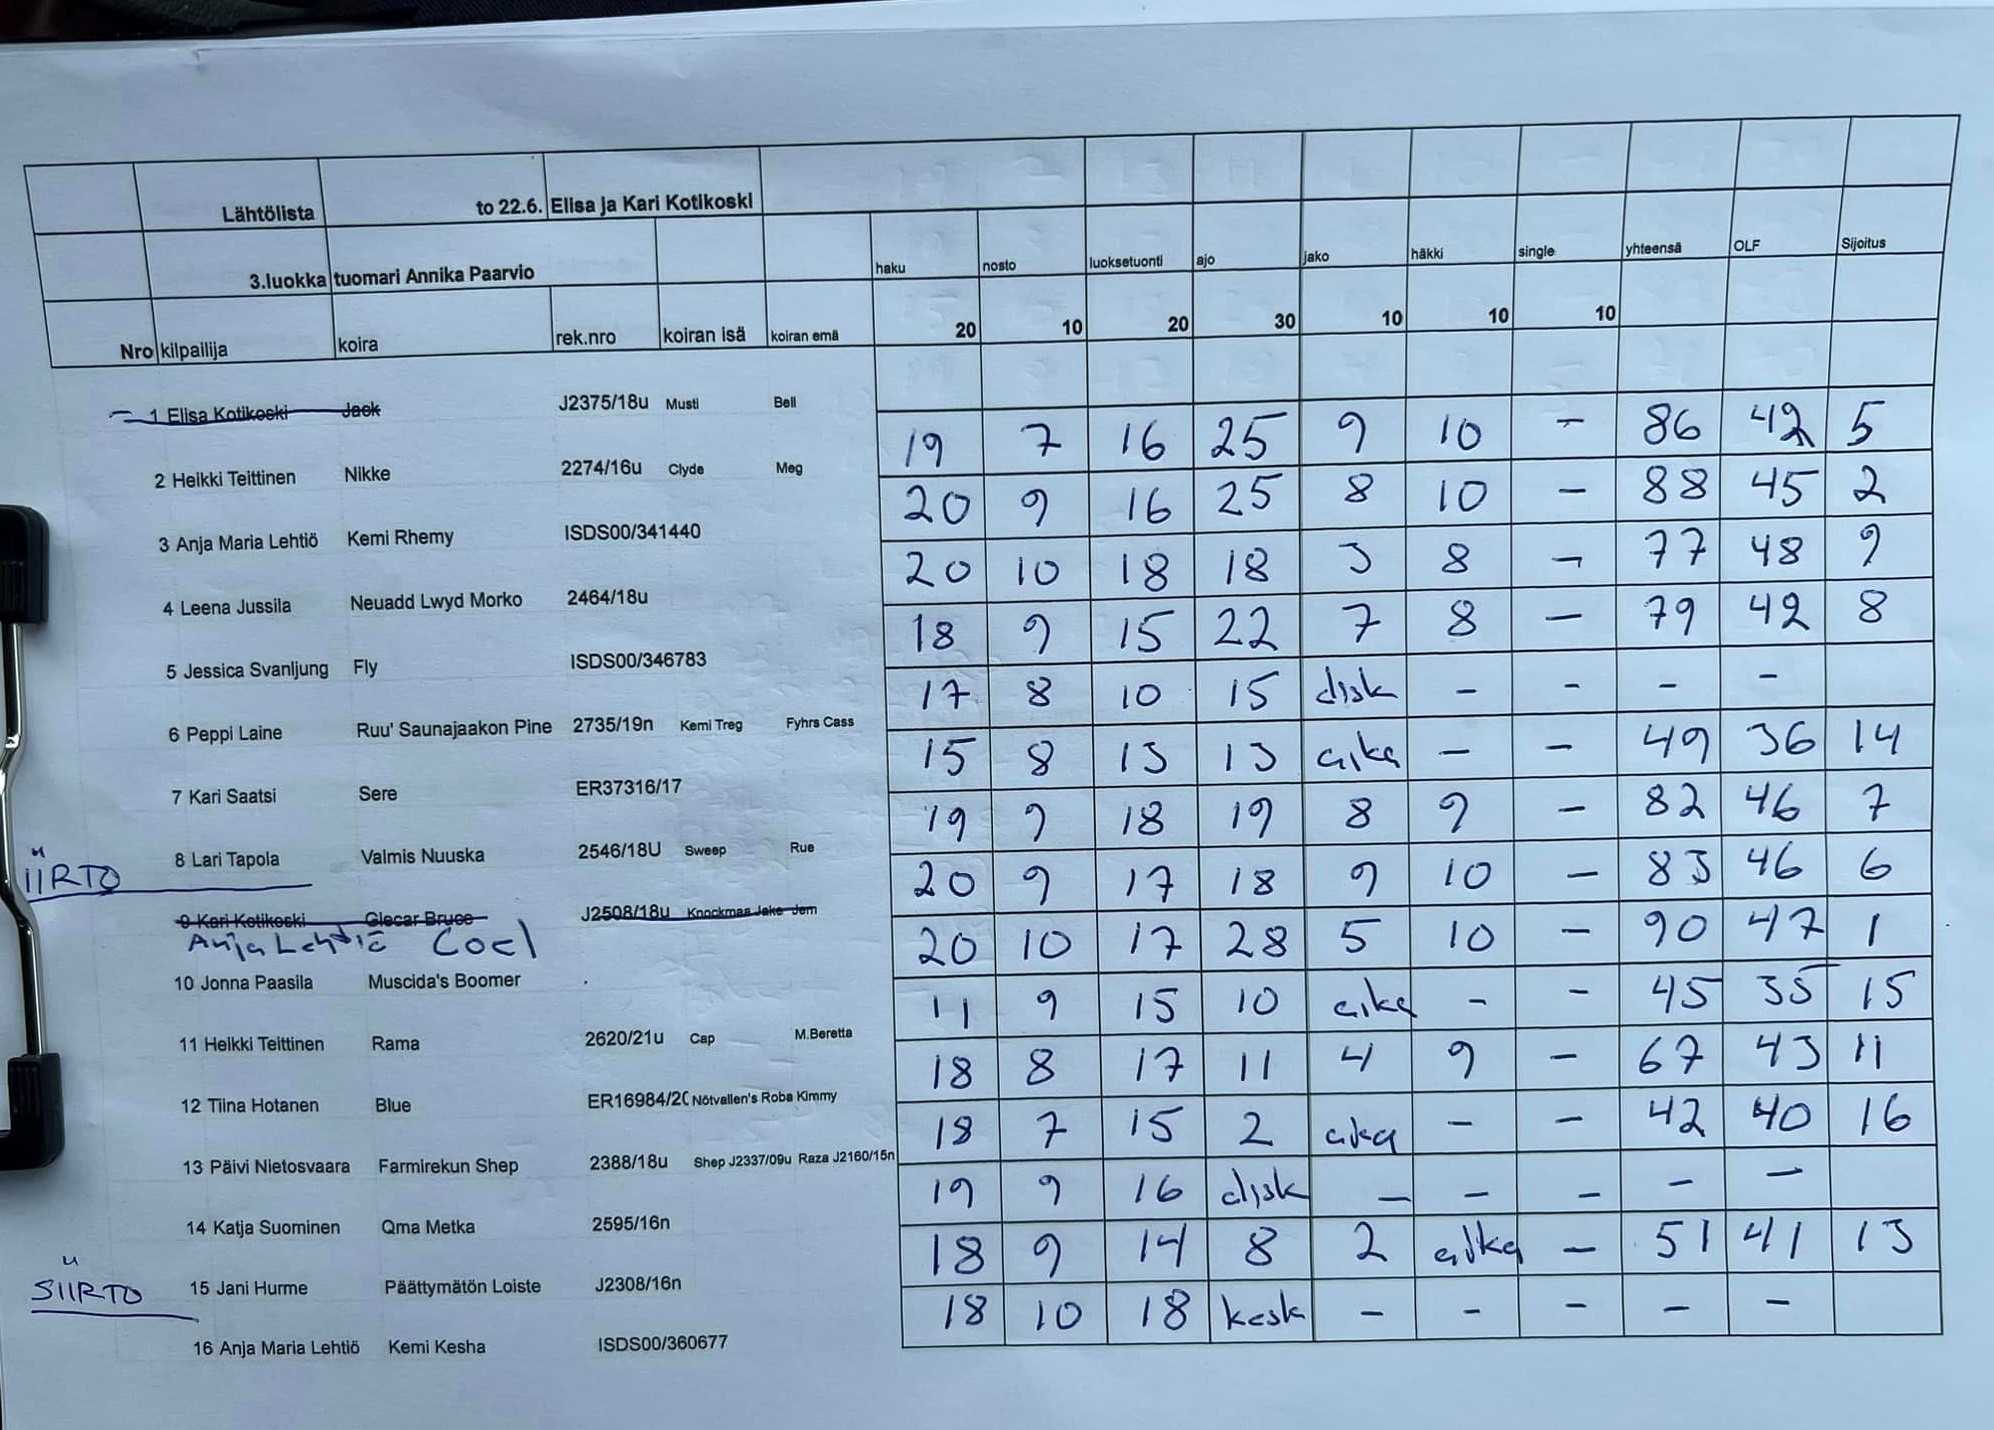 Lähtölista to 22.6. Elisa ja Kari Kotikoski
3.luokka tuomari Annika Paarvio haku nosto luoksetuonti ajo jako häkki single yhteensä OLF Sijoitus
Nro kilpailija koira rek.nro koiran isä koiran emä 20 10 20 30 10 10 10
1 Elisa Kotikoski Jack J2375/18u Musti Bell
19 7 16 25 9 10 - 86 42 5
2 Heikki Teittinen Nikke 2274/16u Clyde Meg
20 9 16 25 8 10 - 88 45 2
3 Anja Maria Lehtiö Kemi Rhemy ISDS00/341440
20 10 18 18 3 8 - 77 48 9
4 Leena Jussila Neuadd Lwyd Morko 2464/18u
18 9 15 22 7 8 - 79 42 8
5 Jessica Svanljung Fly ISDS00/346783
17 8 10 15 disk - - - -
6 Peppi Laine Ruu' Saunajaakon Pine 2735/19n Kemi Treg Fyhrs Cass
15 8 13 13 aika - - 49 36 14
7 Kari Saatsi Sere ER37316/17
19 9 18 19 8 9 - 82 46 7
8 Lari Tapola Valmis Nuuska 2546/18U Sweep Rue
IIRTO
20 9 17 18 9 10 - 83 46 6
9 Kari Kotikoski Glecar Bruce J2508/18u Knockmaa Jake Jem
Anja Lehtiö Coel
20 10 17 28 5 10 - 90 47 1
10 Jonna Paasila Muscida's Boomer
11 9 15 10 aika - - 45 35 15
11 Heikki Teittinen Rama 2620/21u Cap M.Beretta
18 8 17 11 4 9 - 67 43 11
12 Tiina Hotanen Blue ER16984/20 Nötvallen's Roba Kimmy
18 7 15 2 aika - - 42 40 16
13 Päivi Nietosvaara Farmirekun Shep 2388/18u Shep J2337/09u Raza J2160/15n
19 9 16 disk - - - - -
14 Katja Suominen Qma Metka 2595/16n
18 9 14 8 2 aika - 51 41 13
SIIRTO
15 Jani Hurme Päättymätön Loiste J2308/16n
18 10 18 kesk - - - - -
16 Anja Maria Lehtiö Kemi Kesha ISDS00/360677